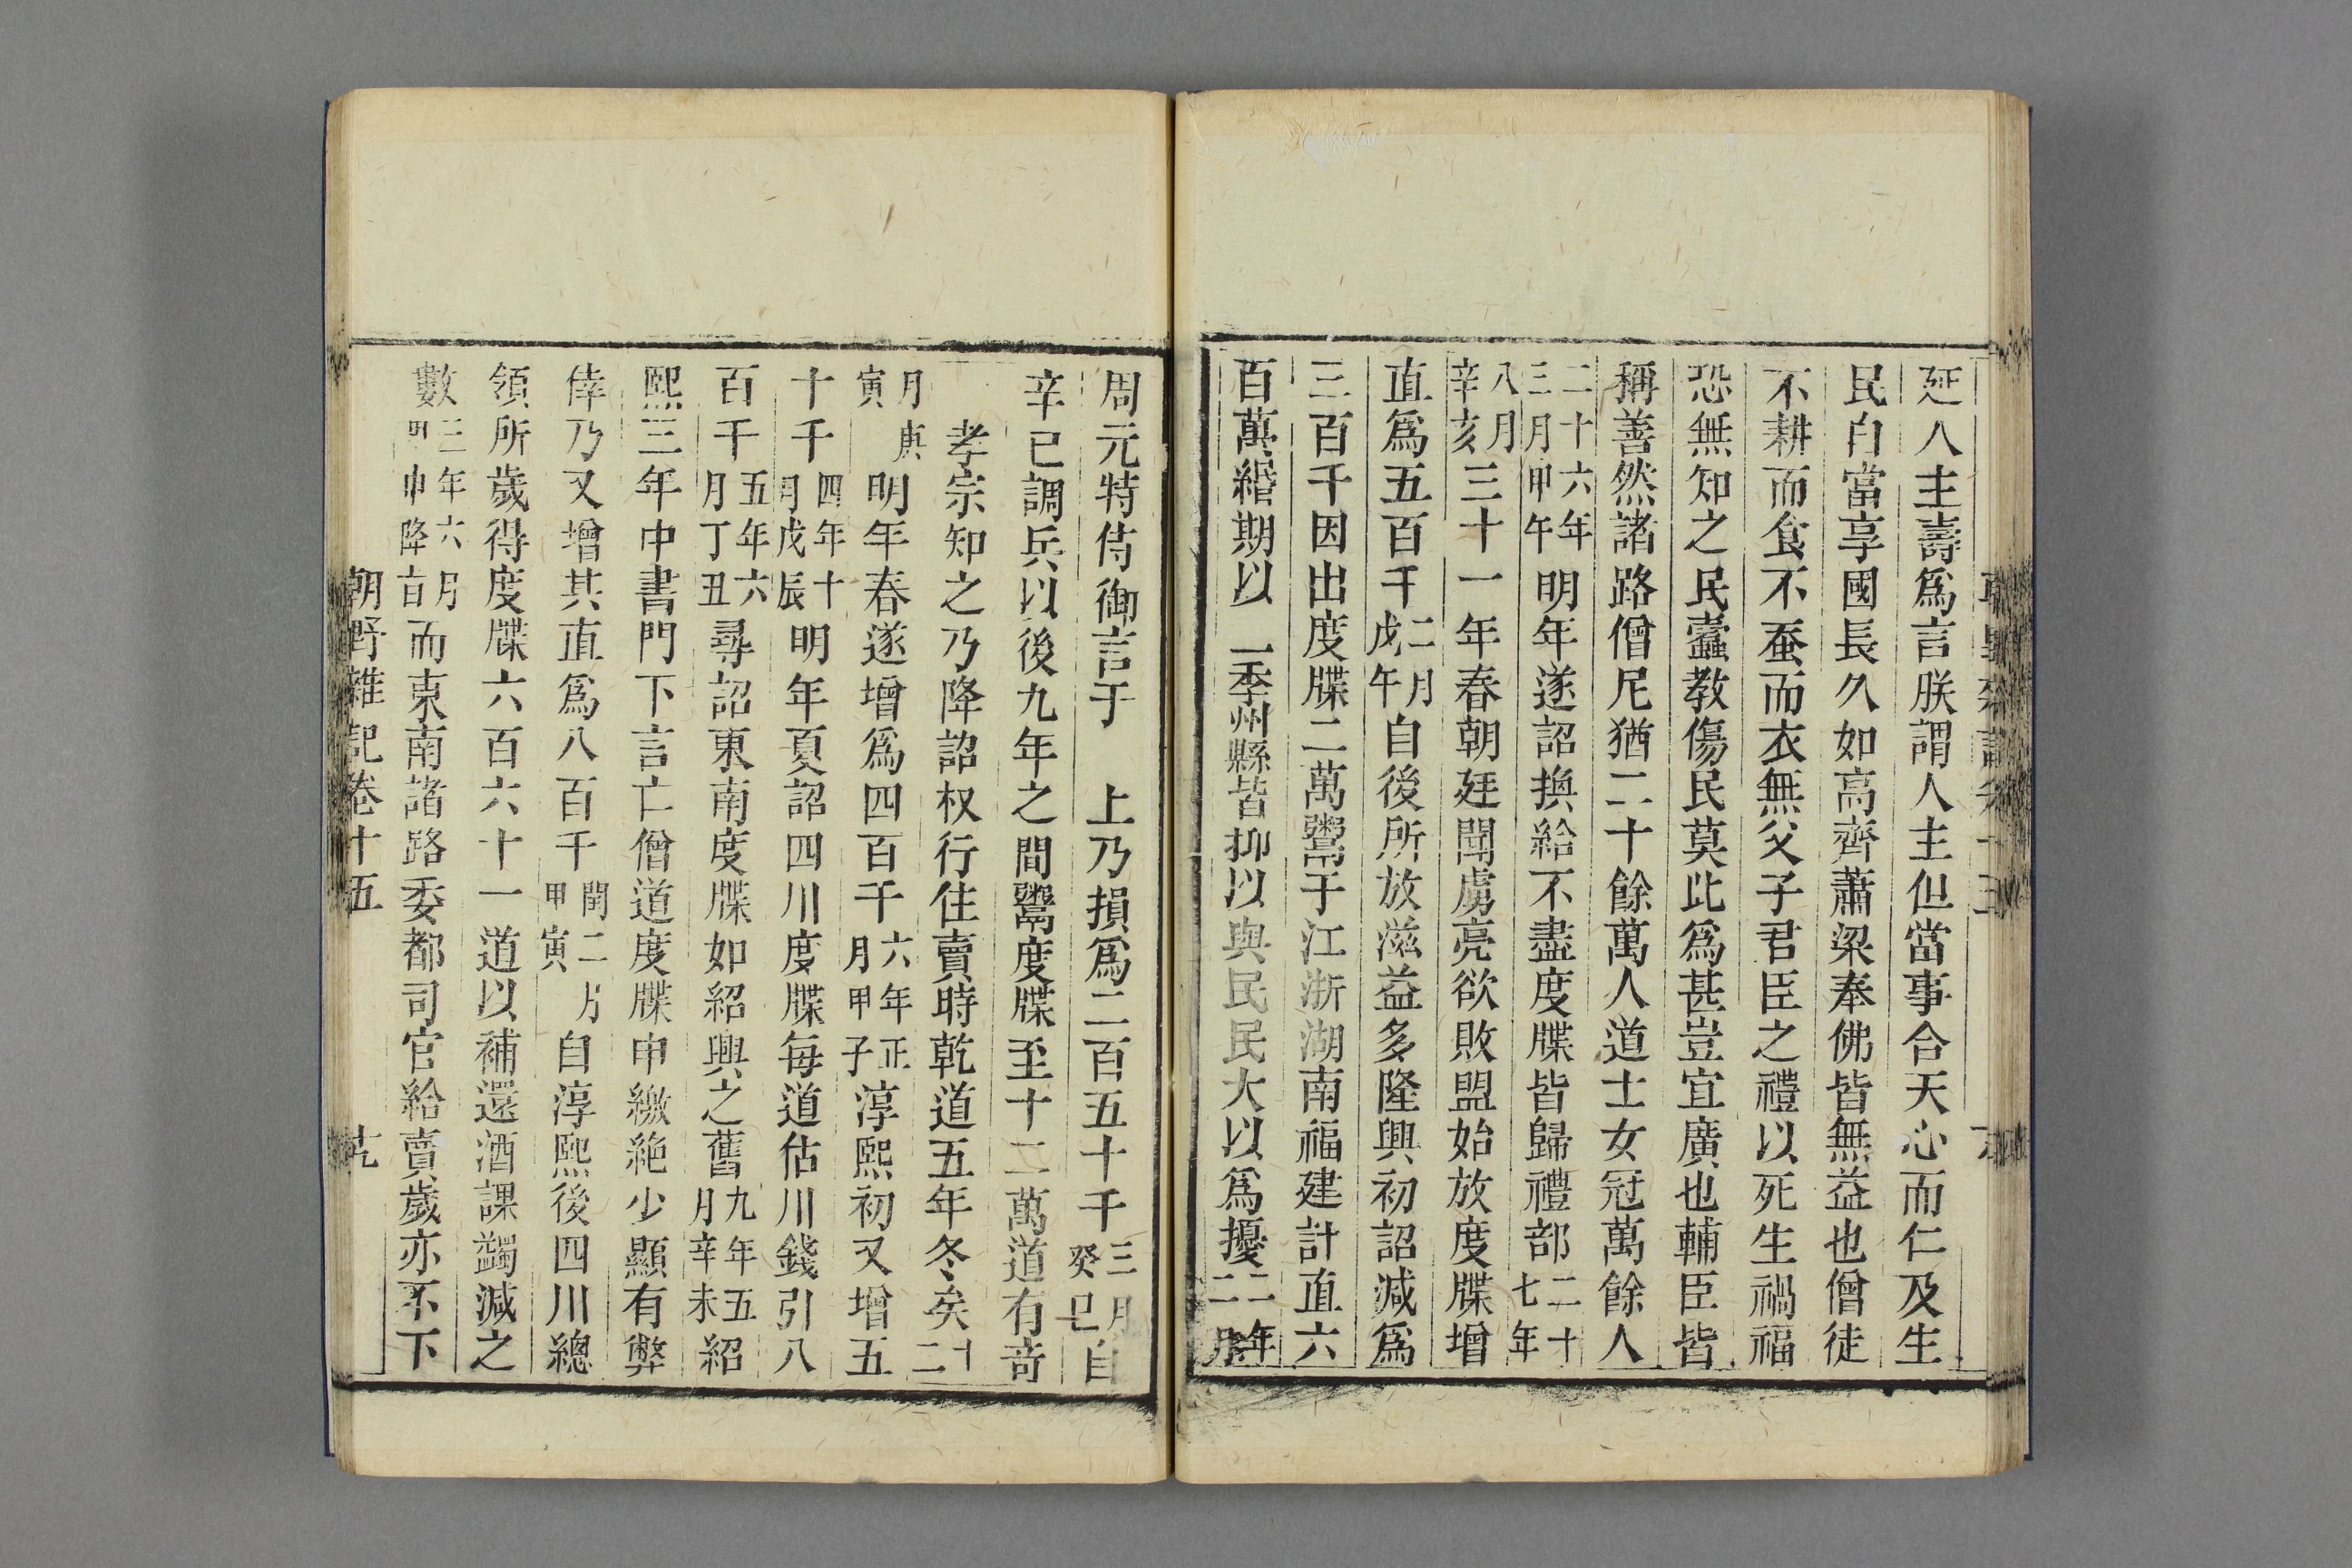 延人主壽爲言朕謂人主但當事合天心而仁及生
民自當享國長久如高齊蕭梁奉佛皆無益也僧徒
不耕而食不蚕而衣無父子君臣之禮以死生禍福
恐無知之民蠹教傷民莫此爲甚豈宜廣也輔臣皆
稱善然諸路僧尼猶二十餘萬人道士女冠萬餘人
二十六年三月甲午明年遂詔換給不盡度牒皆歸禮部二十七年
八月辛亥三十一年春朝廷聞虜亮欲敗盟始放度牒增
直爲五百千二月戊午自後所放滋益多隆興初詔减爲
三百千因出度牒二萬鬻于江浙湖南福建計直六
百萬緡期以一季州縣皆抑以與民民大以爲擾二年二月
周元特侍御言于　上乃損爲二百五十千三月癸巳自
辛巳調兵以後九年之間鬻度牒至十二萬道有竒
孝宗知之乃降詔权行住賣時乾道五年冬矣十二
月庚寅明年春遂增爲四百千六年正月甲子淳熙初又增五
十千四年十月戊辰明年夏詔四川度牒每道估川錢引八
百千五年六月丁丑尋詔東南度牒如紹興之舊九年五月辛未紹
熙三年中書門下言亡僧道度牒申繳絶少顯有弊
倖乃又增其直爲八百千閏二月甲寅自淳熙後四川總
領所歲得度牒六百六十一道以補還酒課蠲减之
數三年六月甲申降旨而東南諸路委都司官給賣歲亦不下
朝野雜記卷十五